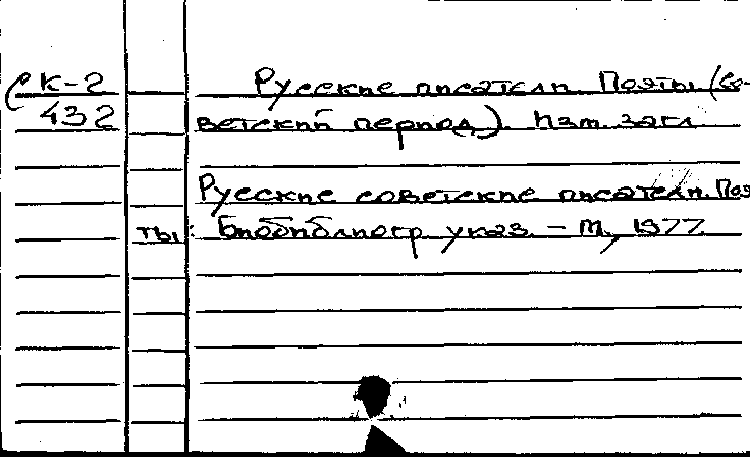 К-2
432
Русские писатели. Поэты (Со-
ветский период). Изм. загл.
Русские советские писатели. Поэ
ты: Биобиблиогр. указ. - М., 1977